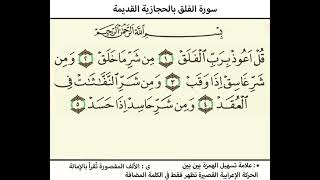 سورة الفلق بالحجازية القديمة
بِسْمِ اللَّهِ الرَّحْمَٰنِ الرَّحِيمِ
قُلْ أَعُوذُ بِرَبِّ الْفَلَقِ ١ مِن شَرِّ مَا خَلَقَ ٢ وَمِن
شَرِّ غَاسِقٍ إِذَا وَقَبَ ٣ وَمِن شَرِّ النَّفَّاثَاتِ فِي
الْعُقَدِ ٤ وَمِن شَرِّ حَاسِدٍ إِذَا حَسَدَ ٥
• : علامة تسهيل الهمزة بين بين
ى : الألف المقصورة تُقرأ بالإمالة
الحركة الإعرابية القصيرة تظهر فقط في الكلمة المضافة